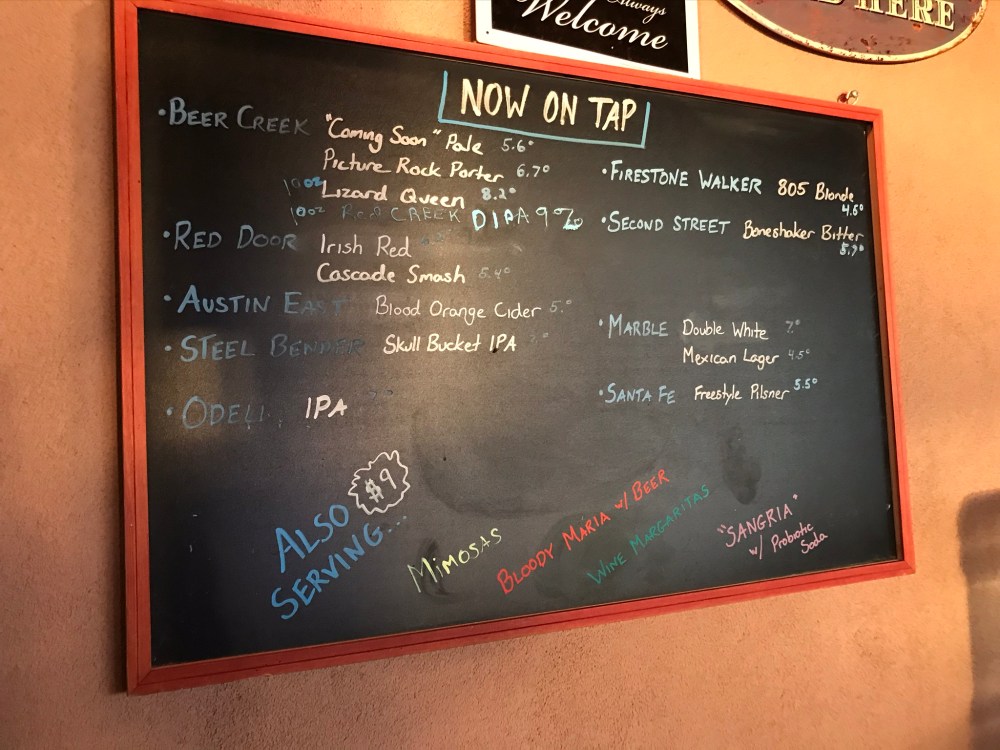 Always
Welcome
HERE
NOW ON TAP
• BEER CREEK "Coming Soon" Pale 5.6°
Picture Rock Porter 6.7°
10oz Lizard Queen 8.2°
10oz RED CREEK DIPA 9%
• RED DOOR Irish Red
Cascade Smash 5.4°
• AUSTIN EAST Blood Orange Cider 5.°
• STEEL BENDER Skull Bucket IPA
• ODELL IPA
• FIRESTONE WALKER 805 Blonde
4.6°
• SECOND STREET Boneshaker Bitter
5.7°
• MARBLE Double White 7.°
Mexican Lager 4.5°
• SANTA FE Freestyle Pilsner 5.5°
ALSO
SERVING...
$9
MIMOSAS
BLOODY MARIA w/ BEER
WINE MARGARITAS
"SANGRIA"
w/ Probiotic
Soda